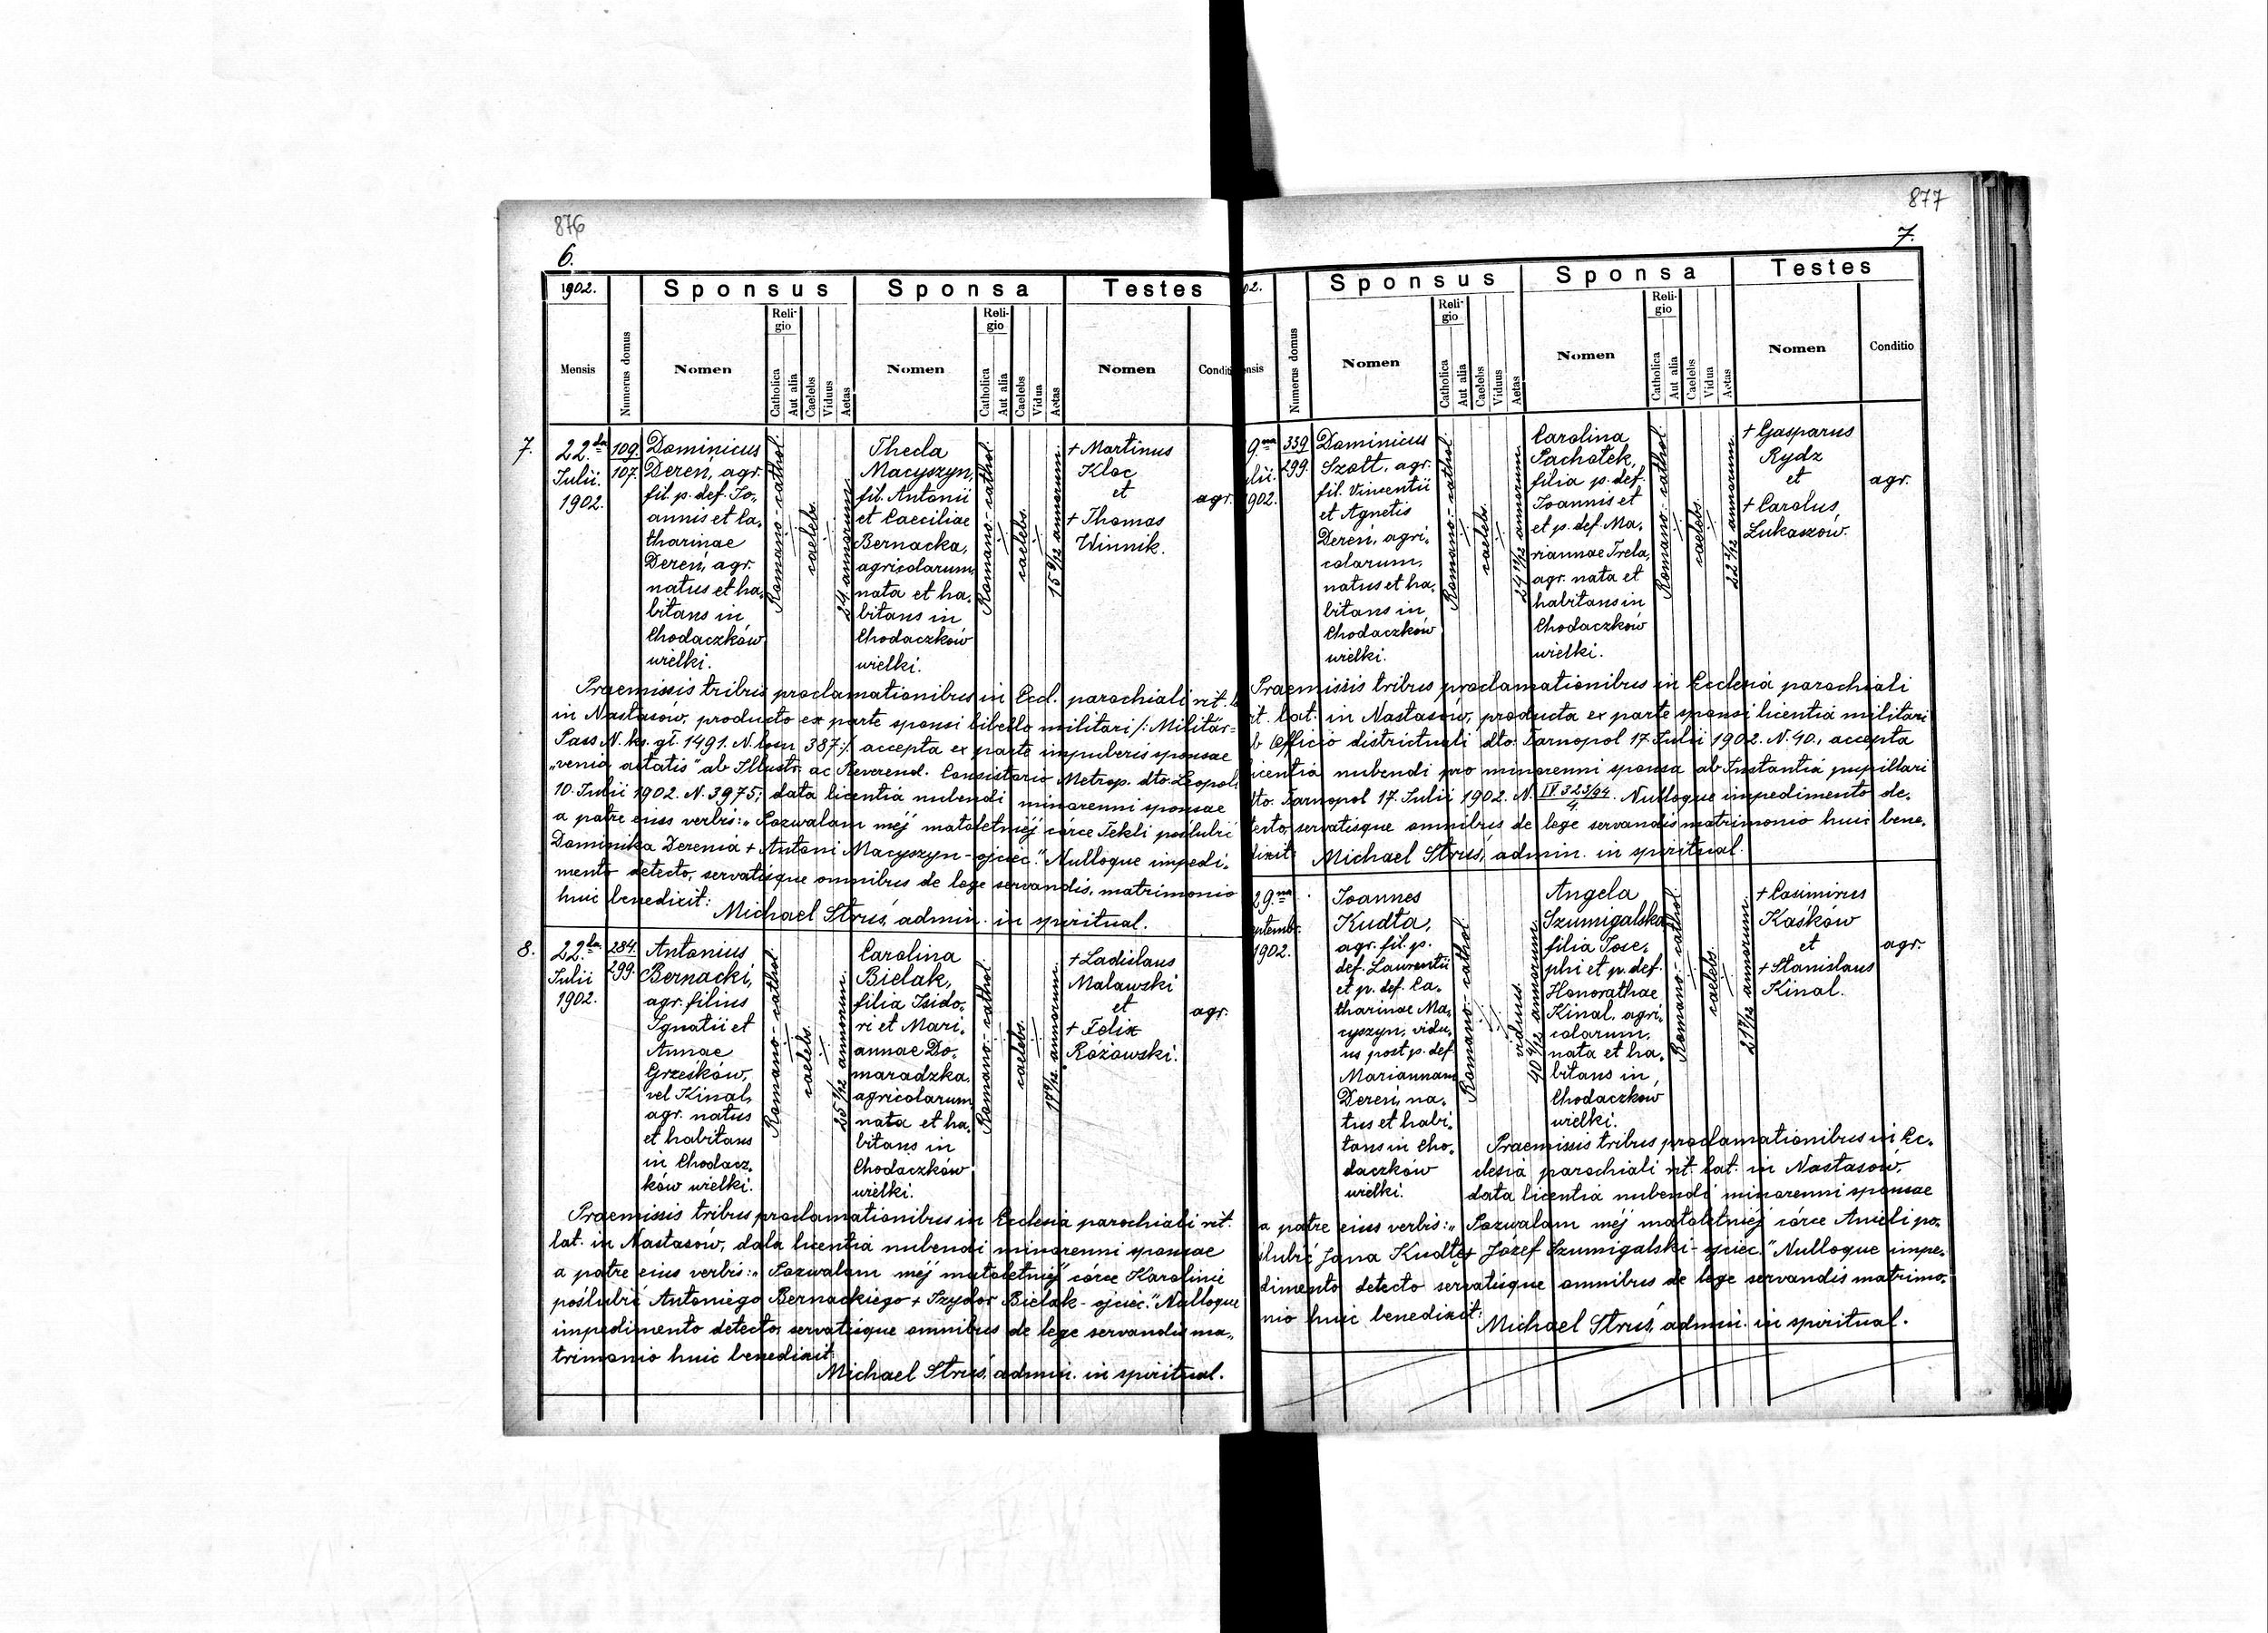 876
6.
1902.
Sponsus
Sponsa
Testes
Mensis
Numerus domus
Nomen
Religio
Catholica
Aut alia
Caelebs
Viduus
Aetas
Nomen
Religio
Catholica
Aut alia
Caelebs
Vidua
Aetas
Nomen
Conditi
7.
22.da
Julii.
1902.
109.
107.
Dominicus
Dereń, agr.
fil. p. def. Jo„
annis et Ca„
tharinae
Dereń, agr.
natus et ha„
bitans in
Chodaczków
wielki.
Romano-cathol.
caelebs.
24 annorum.
Thecla
Macyszyn,
fil. Antonii
et Caeciliae
Bernacka,
agricolarum,
nata et ha„
bitans in
Chodaczków
wielki.
Romano-cathol.
caelebs.
annorum.
+ Martinus
Kloc
et
+ Thomas
Winnik.
agr.
Praemissis tribus proclamationibus in Eccl. parochiali rit.
in Nastasów, producto ex parte sponsi libello militari /: Militär-
Pass N. ks. gł. 1491. N. losu 387:/ accepta ex parte impuberis sponsae
„venia aetatis" ab Illustr. ac Reverend. Consistorio Metrop. dto. Leopoli
10. Julii 1902. N. 3975; data licentia nubendi minorenni sponsae
a patre eius verbis: „Pozwalam méj małoletniéj córce Tekli poślubić
Dominika Derenia + Antoni Macyszyn - ojciec." Nulloque impedi„
mento detecto, servatisque omnibus de lege servandis, matrimonio
huic benedixit:
Michael Struś, admin. in spiritual.
8.
22.da
Julii
1902.
284.
299.
Antonius
Bernacki,
agr. filius
Ignatii et
Annae
Grześków,
vel Kinal,
agr. natus
et habitans
in Chodacz„
ków wielki.
Romano-cathol.
caelebs.
annorum.
Carolina
Bielak,
filia Isido„
ri et Mari„
annae Do„
maradzka,
agricolarum,
nata et ha„
bitans in
Chodaczków
wielki.
Romano-cathol.
caelebs.
annorum.
+ Ladislaus
Malawski
et
+ Felix
Różowski.
agr.
Praemissis tribus proclamationibus in Ecclesia parochiali rit.
lat. in Nastasów, data licentia nubendi minorenni sponsae
a patre eius verbis: „Pozwalam méj małoletniéj córce Karolinie
poślubić Antoniego Bernackiego + Izydor Bielak - ojciec." Nulloque
impedimento detecto, servatisque omnibus de lege servandis ma„
trimonio huic benedixit:
Michael Struś, admin. in spiritual.
877
7.
02.
Sponsus
Sponsa
Testes
ensis
Numerus domus
Nomen
Religio
Catholica
Aut alia
Caelebs
Viduus
Aetas
Nomen
Religio
Catholica
Aut alia
Caelebs
Vidua
Aetas
Nomen
Conditio
9.na
ulii.
902.
339
299.
Dominicus
Szott, agr.
fil. Vincentii
et Agnetis
Dereń, agri„
colarum,
natus et ha„
bitans in
Chodaczków
wielki.
Romano-cathol.
caelebs.
annorum.
Carolina
Pachołek,
filia p. def.
Joannis et
et p. def. Ma„
riannae Trela,
agr. nata et
habitans in
Chodaczków
wielki.
Romano-cathol.
caelebs.
annorum.
+ Gasparus
Rydz
et
+ Carolus
Łukaszów.
agr.
Praemissis tribus proclamationibus in Ecclesia parochiali
rit. lat. in Nastasów, producta ex parte sponsi licentia militari
b Officio districtuali dto. Tarnopol 17. Julii 1902. N. 40., accepta
icentia nubendi pro minorenni sponsa ab Instantia pupillari
dto. Tarnopol 17. Julii 1902. N. IV 323/94/4. Nulloque impedimento de„
tecto, servatisque omnibus de lege servandis matrimonio huic bene„
dixit:
Michael Struś, admin. in spiritual.
29.na
ptembr.
1902.
Joannes
Kudła,
agr. fil. p.
def. Laurentii
et p. def. Ca„
tharinae Ma„
cyszyn, vidu„
us post p. def.
Mariannam
Dereń, na„
tus et habi„
tans in Cho„
daczków
wielki.
Romano-cathol.
viduus.
annorum.
Angela
Szumigalska
filia Jose„
phi et p. def.
Honorathae
Kinal, agri„
colarum,
nata et ha„
bitans in
Chodaczków
wielki.
Romano-cathol.
caelebs.
annorum.
+ Casimirus
Kaśków
et
+ Stanislaus
Kinal.
agr.
Praemissis tribus proclamationibus in Ec„
clesia parochiali rit. lat. in Nastasów,
data licentia nubendi minorenni sponsae
a patre eius verbis: „Pozwalam méj małoletniéj córce Anieli po„
ślubić Jana Kudłę + Józef Szumigalski - ojciec." Nulloque impe„
dimento detecto servatisque omnibus de lege servandis matrimo„
nio huic benedixit:
Michael Struś, admin. in spiritual.